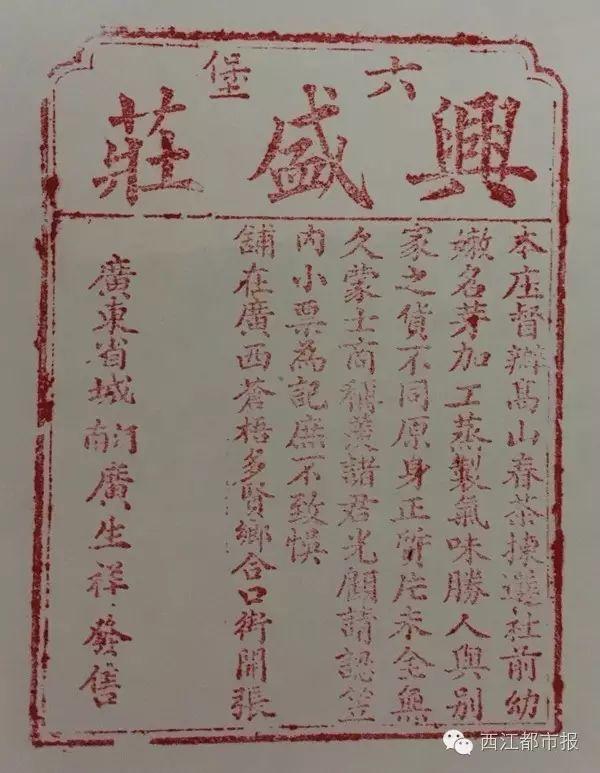 六堡
興盛莊
本庄督辦高山春茶揀選社前幼
嫩名芽加工蒸製氣味勝人與別
家之貨不同原身正質片末全無
久蒙士商稱羨諸君光顧請認笠
內小票為記庶不致悞
舖在廣西蒼梧多賢鄉合口街開張
廣東省城南門廣生祥發售
西江都市报